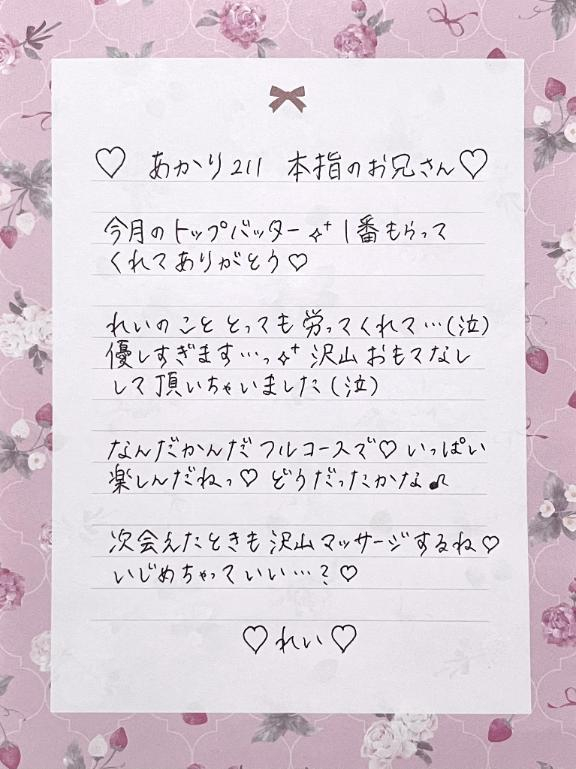 ♡ あかり211 本指のお兄さん♡
今月のトップバッター✧⁺ 1番もらって
くれてありがとう♡
れいのこととっても労ってくれて…(泣)
優しすぎます…っ✧⁺ 沢山おもてなし
して頂いちゃいました(泣)
なんだかんだフルコースで♡ いっぱい
楽しんだねっ♡ どうだったかな♫
次会えたときも沢山マッサージするね♡
いじめちゃっていい…?♡
♡れい♡